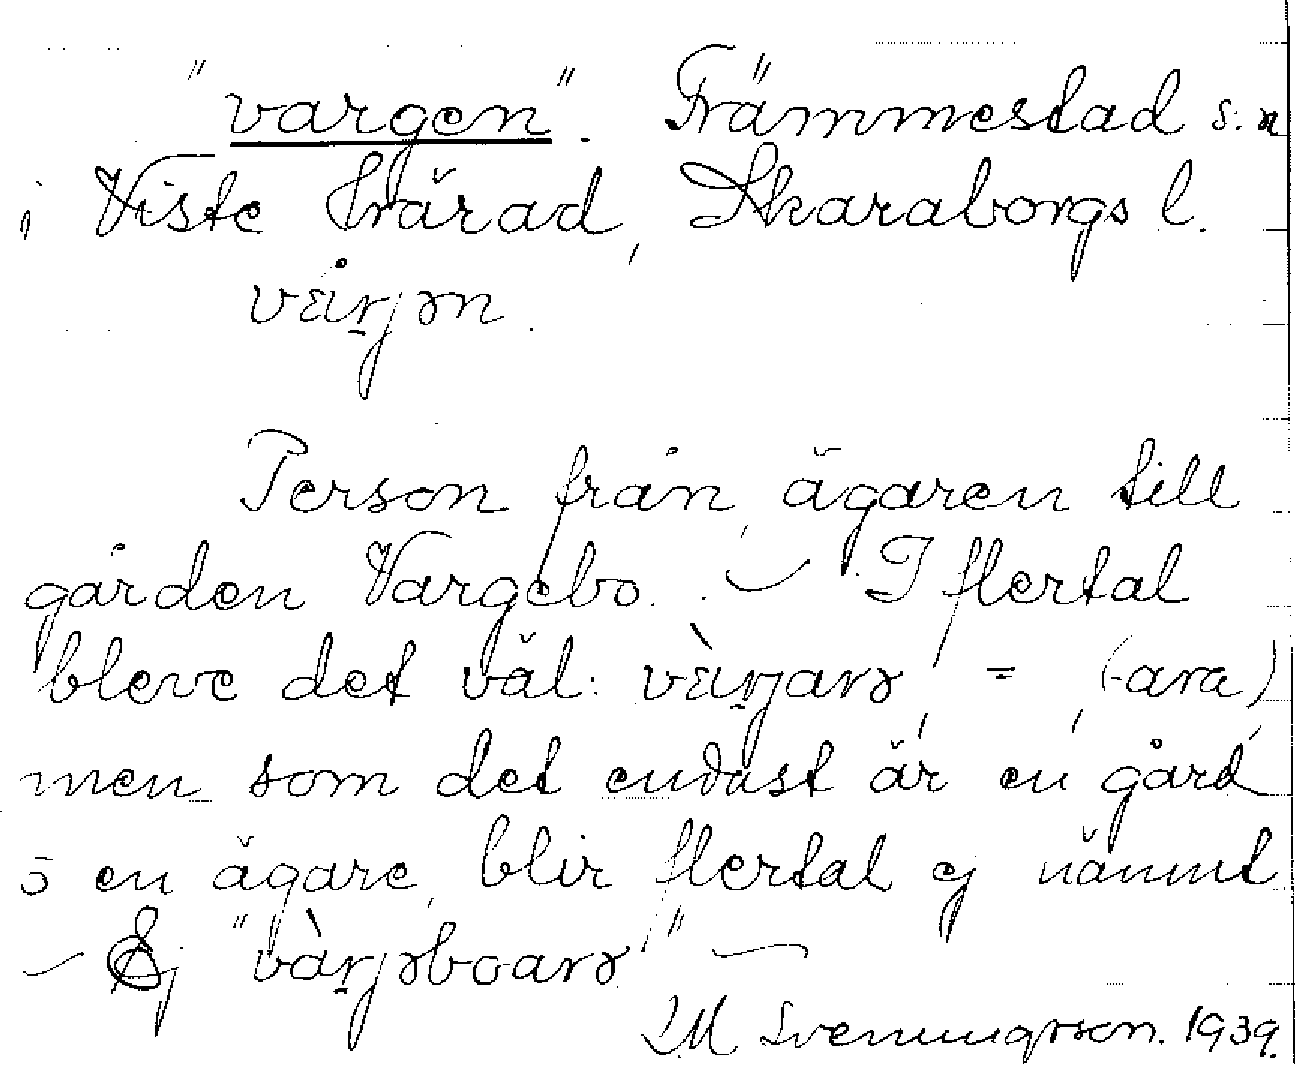 "vargen". Främmestad s:n
i Viste härad, Skaraborgs l.
Person från, ägaren till
gården Vargebo. — I flertal
bleve det väl: = (-ara),
men som det endast är en gård
o en ägare, blir flertal ej nämnt
— Ej —
Svenningsson. 1939.